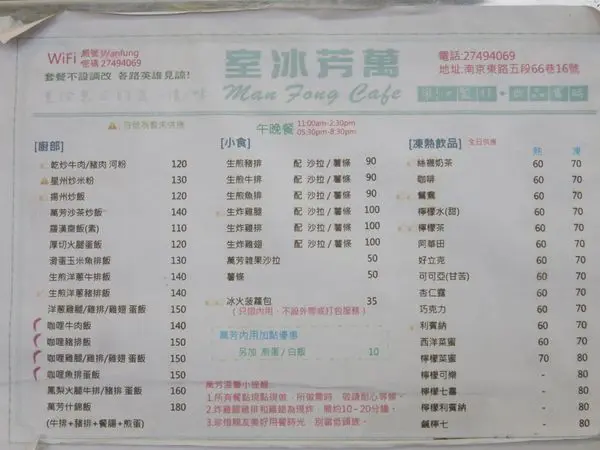 WiFi 帳號:Wanfung
密碼 27494069
套餐不設調改 各路英雄見諒!
室冰芳萬
Man Fong Cafe
電話:27494069
地址:南京東路五段66巷16號
午晚餐 11:00am-2:30pm
05:30pm-8:30pm
[廚部]
乾炒牛肉/豬肉 河粉 120
星州炒米粉 130
揚州炒飯 120
萬芳沙茶炒飯 140
羅漢齋飯(素) 110
厚切火腿蛋飯 120
滑蛋玉米魚排飯 130
生煎洋蔥牛排飯 140
生煎洋蔥豬排飯 140
洋蔥雞腿/雞排/雞翅 蛋飯 150
咖哩牛肉飯 140
咖哩豬排飯 150
咖哩雞腿/雞排/雞翅 蛋飯 150
咖哩魚排蛋飯 150
鳳梨火腿牛排/豬排 蛋飯 160
萬芳什錦飯 180
(牛排+豬排+餐腸+煎蛋)
[小食]
生煎豬排 配 沙拉/薯條 90
生煎牛排 配 沙拉/薯條 90
生煎魚排 配 沙拉/薯條 90
生炸雞腿 配 沙拉/薯條 100
生炸雞排 配 沙拉/薯條 100
生炸雞翅 配 沙拉/薯條 100
萬芳雜果沙拉 50
薯條 50
冰火菠蘿包 35
(只限內用，不設外帶或打包服務)
萬芳內用加點優惠
另加 煎蛋/白飯 10
萬芳溫馨小提醒
1.所有餐點現點現做，所做需時，敬請耐心等候。
2.炸雞腿雞排和雞翅為現炸，需約10-20分鐘。
3.珍惜親友美好用餐時光，別當低頭族。
[凍熱飲品] 全日供應
熱 凍
絲襪奶茶 60 70
咖啡 60 70
鴛鴦 60 70
檸檬水(甜) 60 70
檸檬茶 60 70
阿華田 60 70
好立克 60 70
可可亞(甘苦) 60 70
杏仁露 60 70
巧克力 60 70
利賓納 60 70
西洋菜蜜 60 70
檸檬菜蜜 70 80
檸檬可樂 - 80
檸檬七喜 - 80
檸檬利賓納 - 80
鹹檸七 - 80